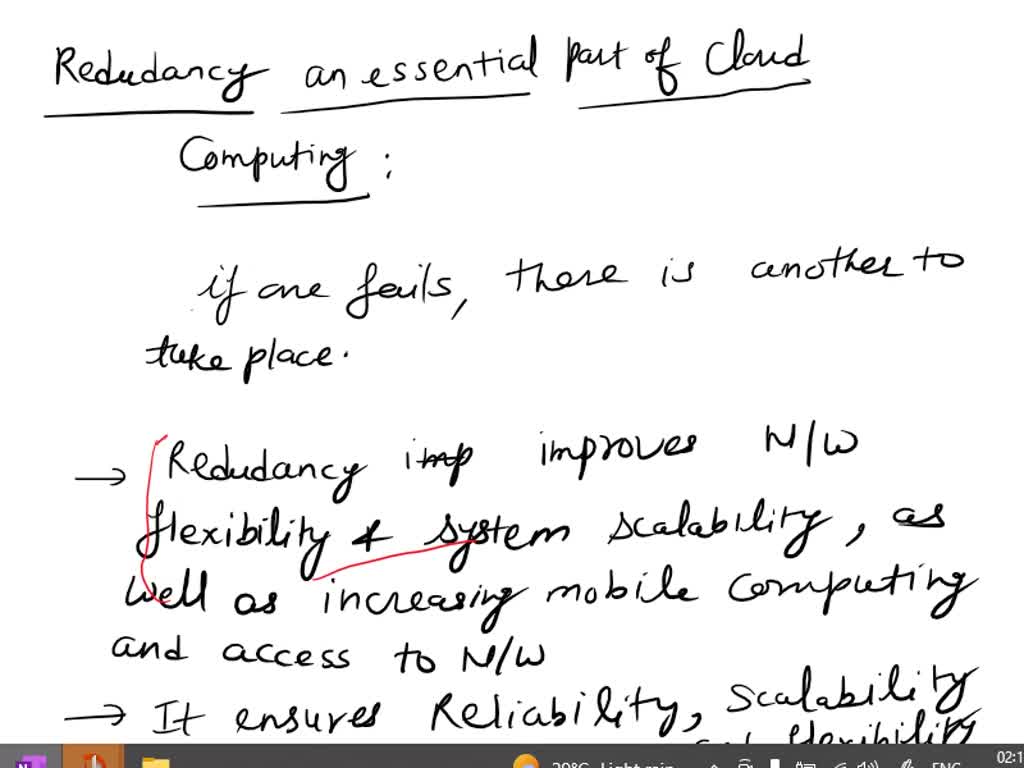 Redudancy an essential part of Cloud
Computing :
if one fails, there is another to
take place.
→ Redudancy imp improves N/W
flexibility & system scalability, as
well as increasing mobile computing
and access to N/W
→ It ensures Reliability, Scalability
and flexibility
20°C Light rain ENG